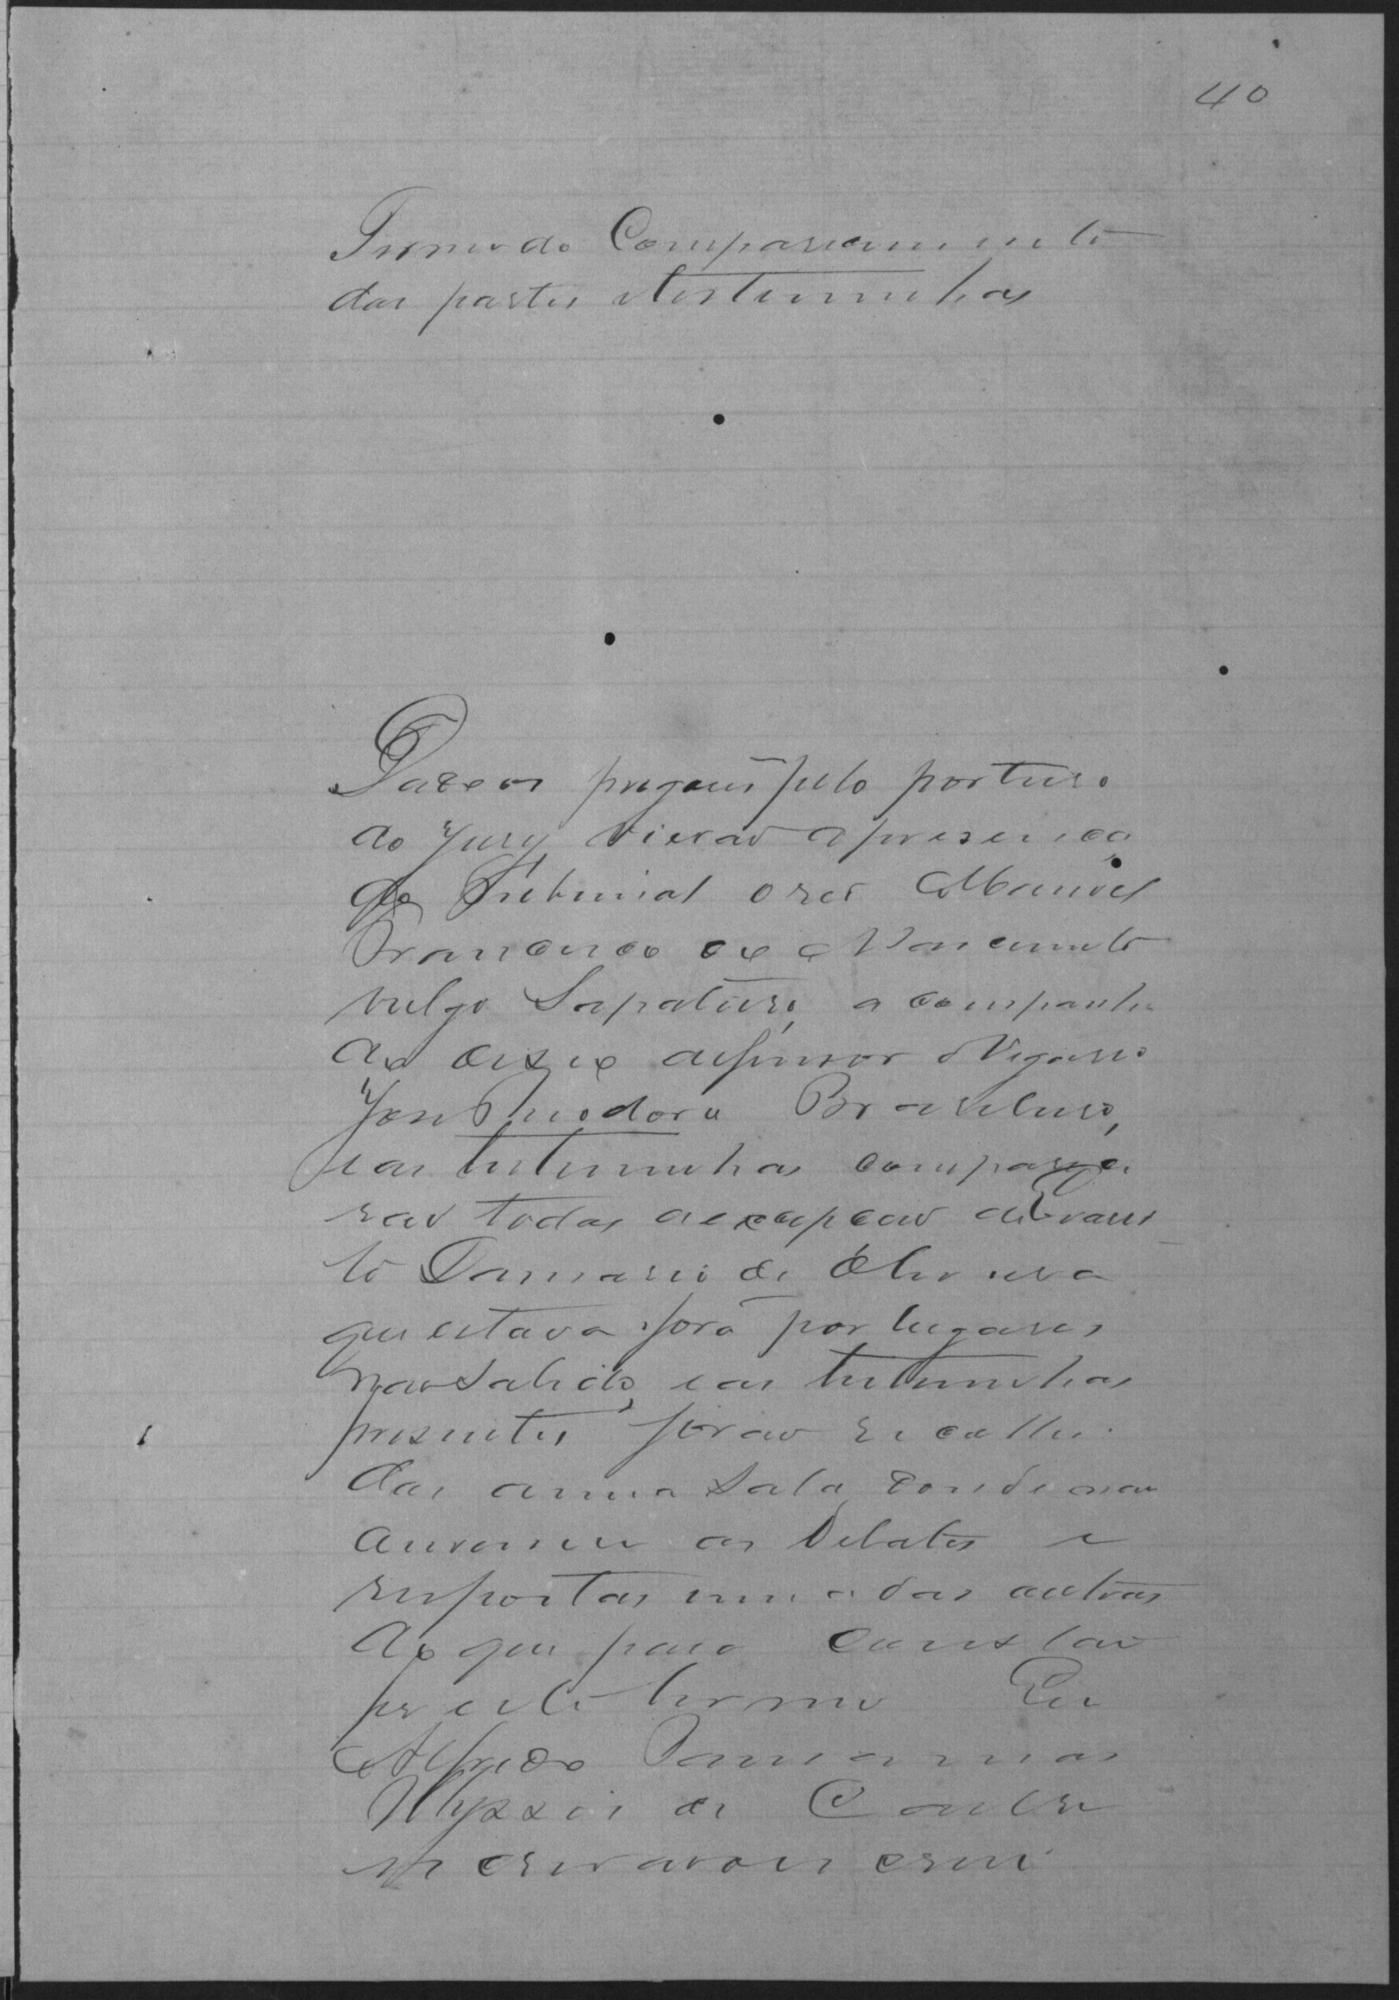 40
Termo de Comparecimento
das partes e testemunhas
Dados pregois pelo porteiro
do Jury vierão a presença
do Tribunal o reo Manoel
Francisco do Nascimento
vulgo Sapateiro, acompanha
do de seu defensor o Vigario
José Theodoro Brasileiro,
e as testemunhas comparece
rão todas a excepção de Evaris
to Damasio de Oliveira
que estava fora por lugares
não sabido, e as testemunhas
presentes forão recolhi
das a uma sala donde não
ouvirem os debates e
respostas umas das outras
do que para constar
este termo Eu
Alfredo
de
escrivão escrevi